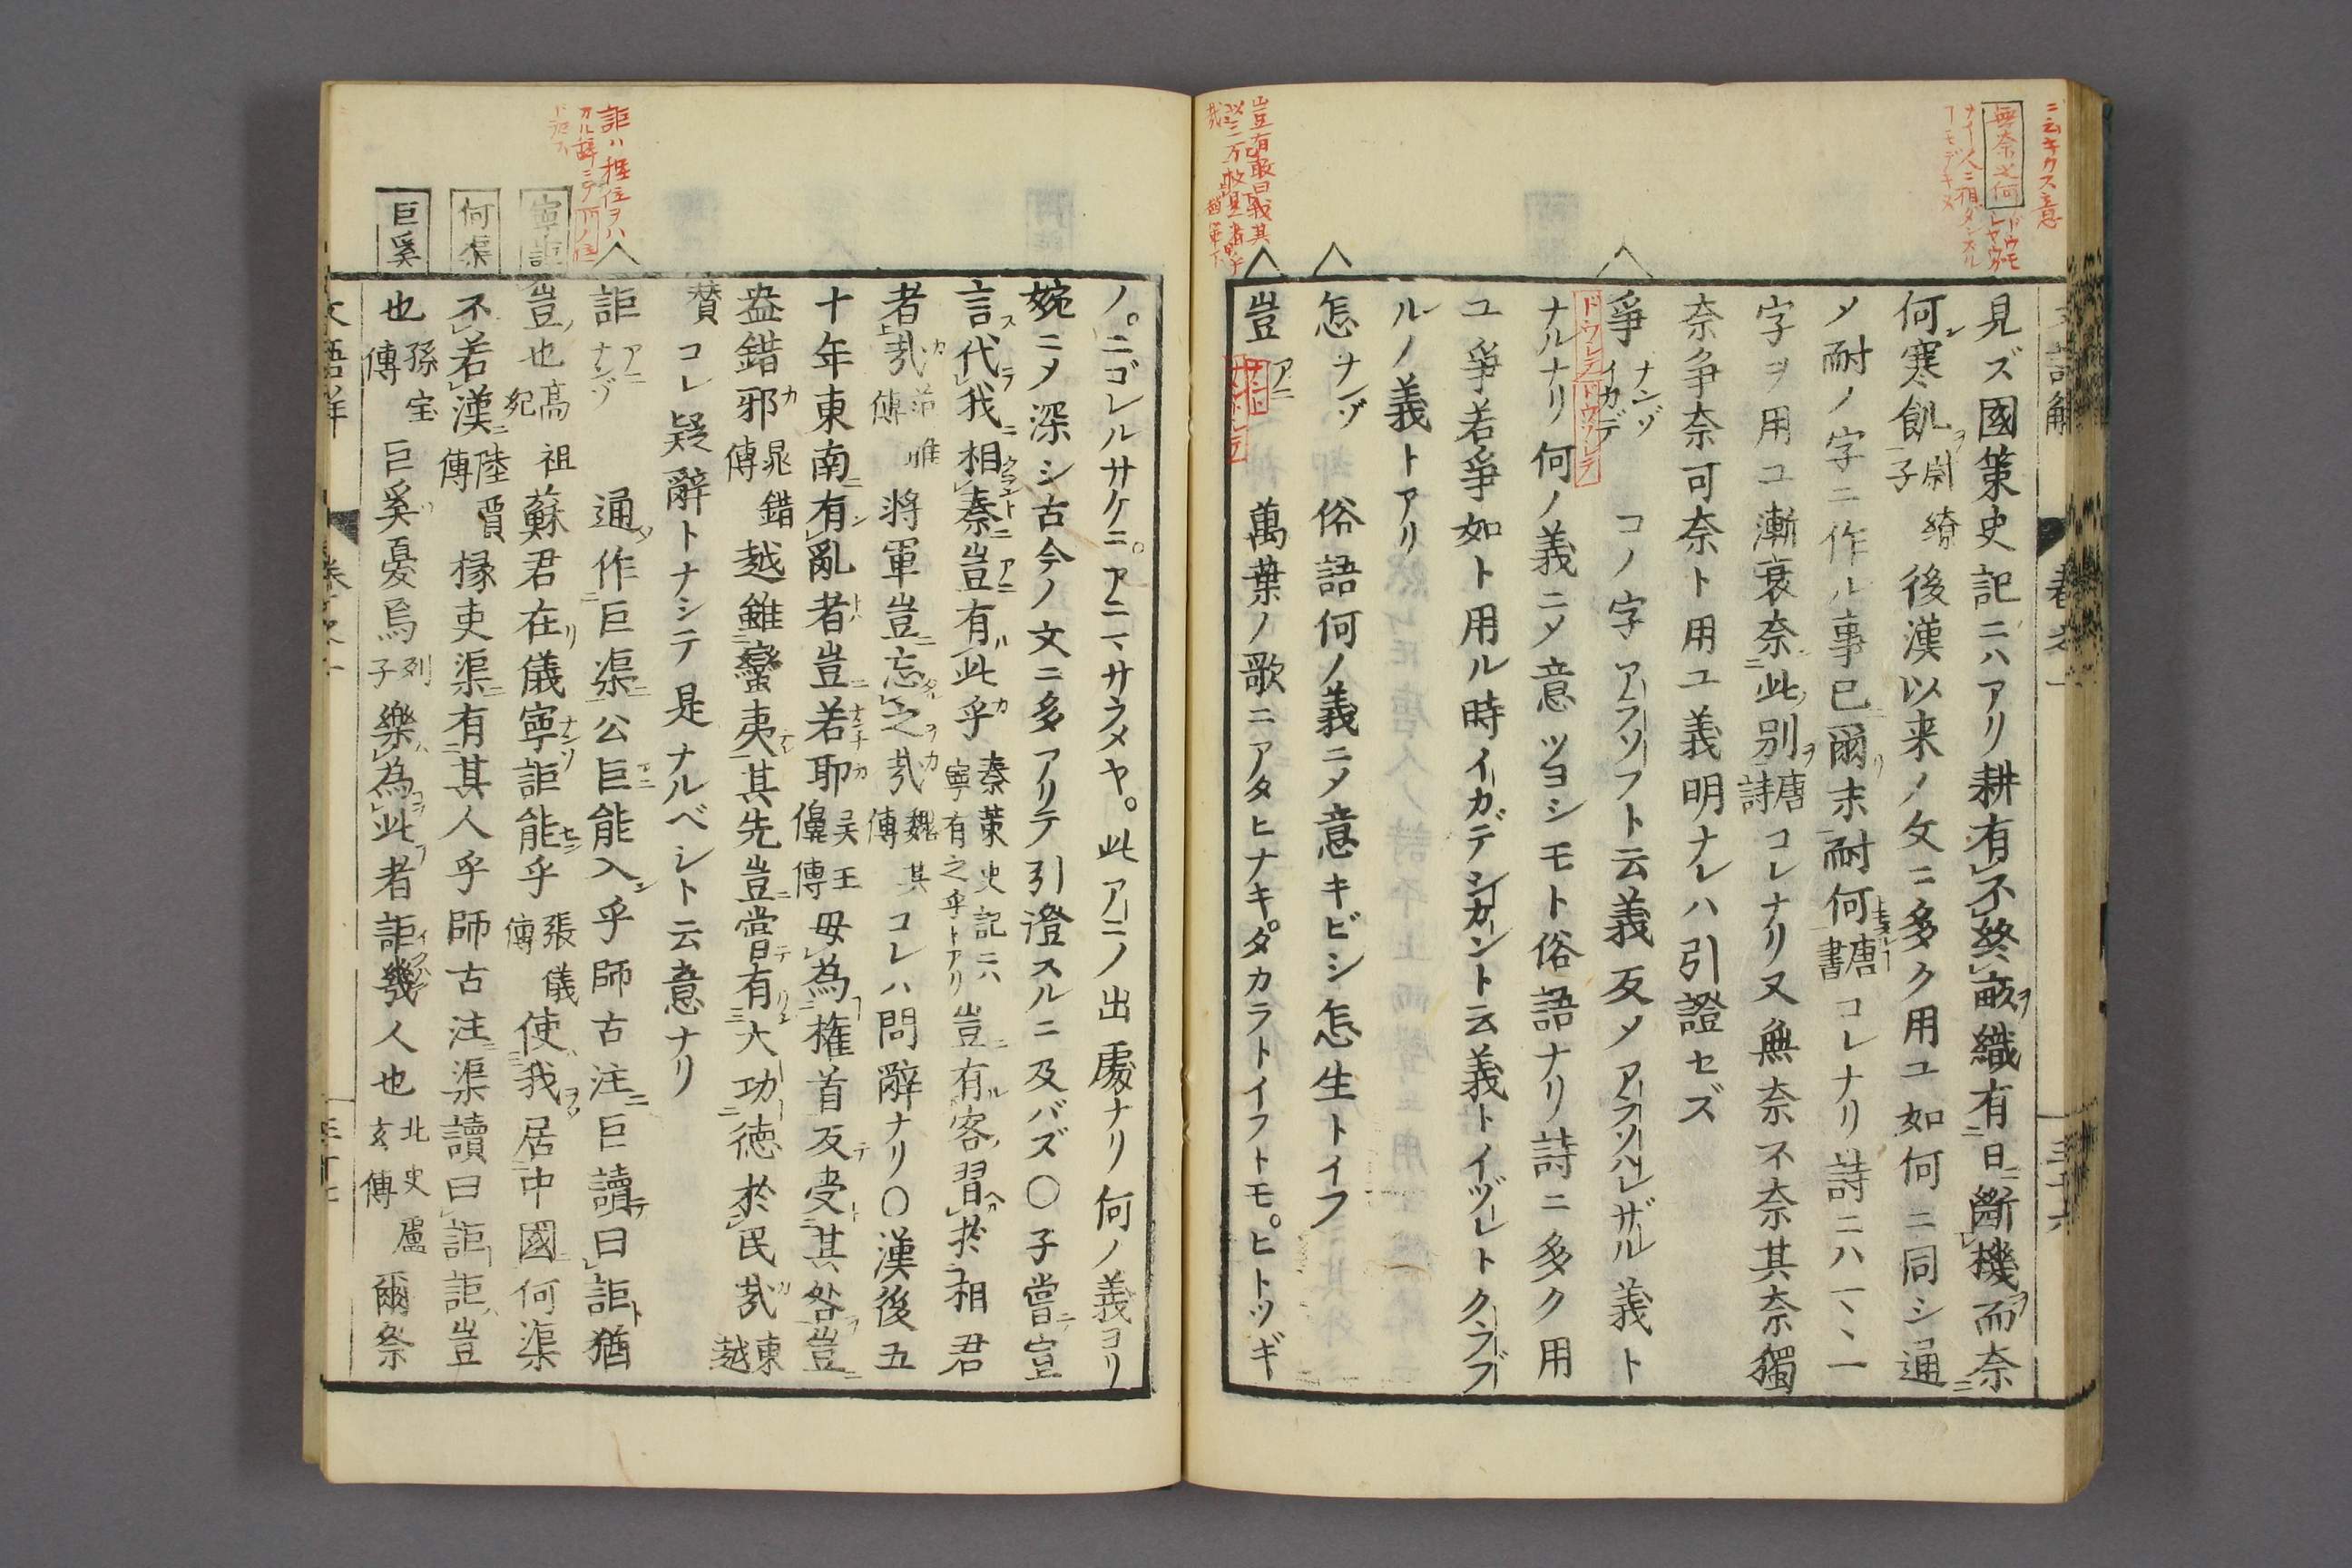 見ズ國策史記ニハアリ耕有不終畝織有日斷機而奈
何寒飢尉繚子後漢以来ノ文ニ多ク用ユ如何ニ同シ通
〆耐ノ字ニ作ル事已爾末耐何唐書コレナリ詩ニハ
字ヲ用ユ漸衰奈此別唐詩コレナリ又無奈不奈其奈獨
奈争奈可奈ト用ユ義明ナレハ引證セズ
爭 ナンゾ イカデ コノ字アラソフト云義反〆アラソハレザル義ト
ナルナリ何ノ義ニ〆意ツヨシモト俗語ナリ詩ニ多ク用
ユ爭若爭如ト用ル時イカデシカント云義トイヅレトクラブ
ルノ義トアリ
怎 ナンゾ 俗語何ノ義ニ〆意キビシ怎生トイフ
豈 アニ 萬葉ノ歌ニアタヒナキ。タカラトイフトモ。ヒトツギ
ノ。ニゴレルサケニ。アニマサラメヤ。此アニノ出處ナリ何ノ義ヨリ
婉ニ〆深シ古今ノ文ニ多アリテ引證スルニ及バズ〇子嘗豈
言代我相秦豈有此乎秦策史記ニハ寧有之乎トアリ豈有客習於相君
者哉范雎傳將軍豈忘之哉魏其傳コレハ問辭ナリ〇漢後五
十年東南有亂者豈若耶吳王傳毋為權首反受其咎豈
盎錯邪晁錯傳越雖蠻夷其先豈嘗有大功徳於民哉東越
賛コレ疑辭トナシテ是ナルベシト云意ナリ
詎 アニ ナンゾ 通作巨渠公巨能入乎師古注巨讀曰詎猶
豈也高祖紀蘇君在儀寧詎能乎張儀傳使我居中國何渠
不若漢陸賈傳掾吏渠有其人乎師古注渠讀曰詎詎豈
也孫宝傳巨奚憂焉列子樂為此者詎幾人也北史盧玄傳爾祭
寧詎
何渠
巨奚
無奈之何
ニ云キカス意
豈有敢曰義其
詎ハ極位ヲハ